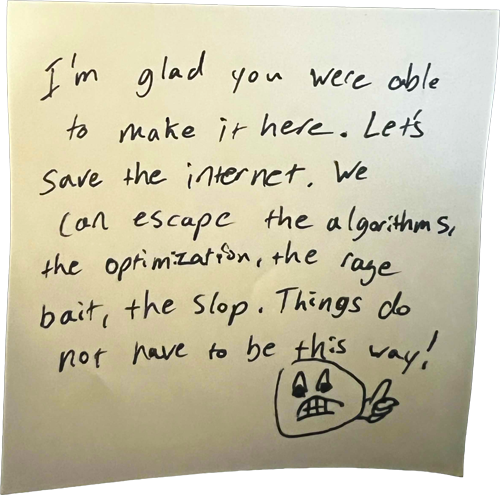 I'm glad you were able
to make it here. Let's
save the internet. We
can escape the algorithms,
the optimization, the rage
bait, the slop. Things do
not have to be this way!